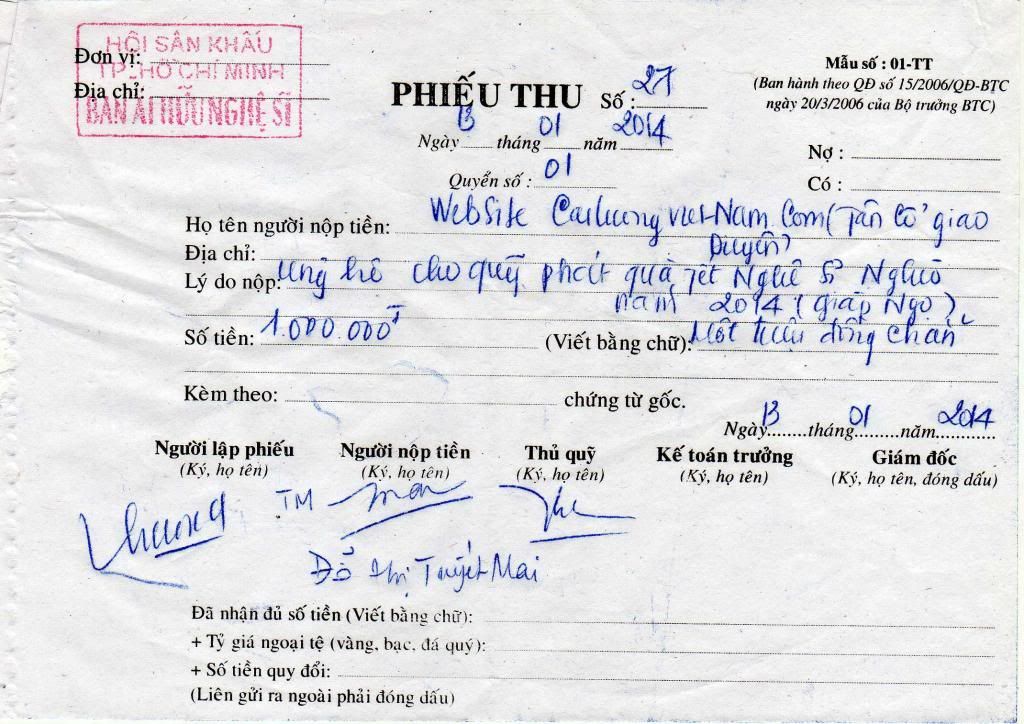 HỘI SÂN KHẤU
Đơn vị:
TP_HỒ CHÍ MINH
Địa chỉ:
BAN ÁI HỮU NGHỆ SĨ
Mẫu số : 01-TT
(Ban hành theo QĐ số 15/2006/QĐ-BTC
ngày 20/3/2006 của Bộ trưởng BTC)
PHIẾU THU Số : 27
Ngày 13 tháng 01 năm 2014
Quyển số : 01
Nợ :
Có :
Họ tên người nộp tiền: WebSite Cailuongvietnam.Com (Tân cổ giao
Duyên)
Địa chỉ:
Lý do nộp: ủng hộ cho quỹ phát quà Tết Nghệ Sĩ Nghèo
năm 2014 (Giáp Ngọ)
Số tiền: 1.000.000đ (Viết bằng chữ): Một triệu đồng chẵn
Kèm theo: chứng từ gốc.
Ngày 13 tháng 01 năm 2014
Người lập phiếu Người nộp tiền Thủ quỹ Kế toán trưởng Giám đốc
(Ký, họ tên) (Ký, họ tên) (Ký, họ tên) (Ký, họ tên) (Ký, họ tên, đóng dấu)
TM
Đỗ Thị Tuyết Mai
Đã nhận đủ số tiền (Viết bằng chữ):
+ Tỷ giá ngoại tệ (vàng, bạc, đá quý):
+ Số tiền quy đổi:
(Liên gửi ra ngoài phải đóng dấu)